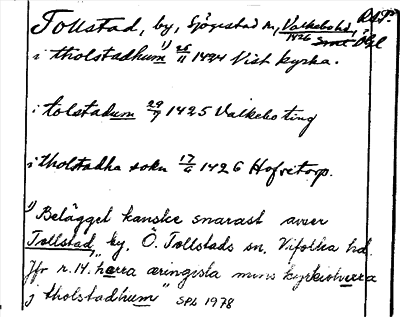 Tollstad, by, Sjögestad sn, Valkebo hd, Ögl
1426
i tholstadhum 1) 25/11 1424 Vist kyrka.
i tolstadum 29/7 1425 Valkebo ting
i tholstadha sokn 17/6 1426 Hofretorp.
1) Belägget kanske snarast avser
Tollstad, by, Ö. Tollstads sn, Vifolka hd.
Jfr r. 14. "herra æringisla mins kyrkioherra
j tholstadhum" SPL 1978